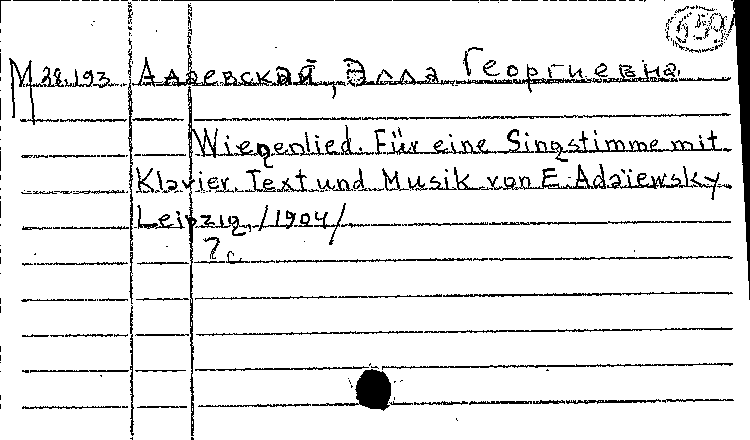 659
М 28.193 Адаевская, Элла Георгиевна.
Wiegenlied. Für eine Singstimme mit
Klavier. Text und Musik von E. Adaïewsky
Leipzig, /1904/.
7 c.